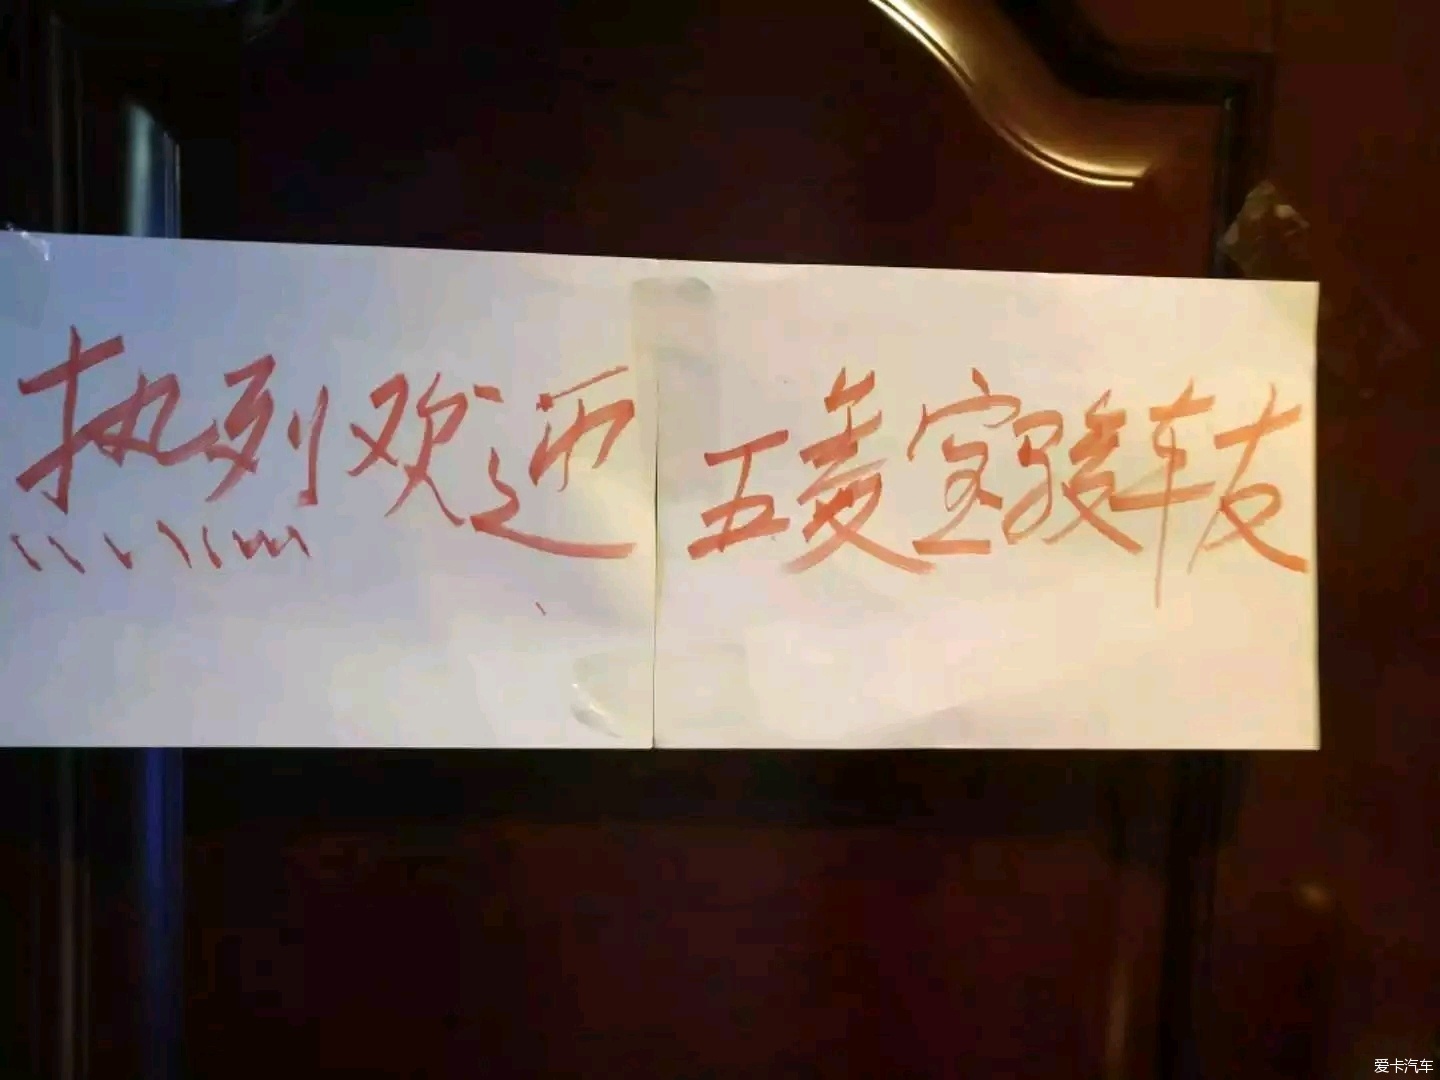 热烈欢迎五菱宝骏车友
爱卡汽车